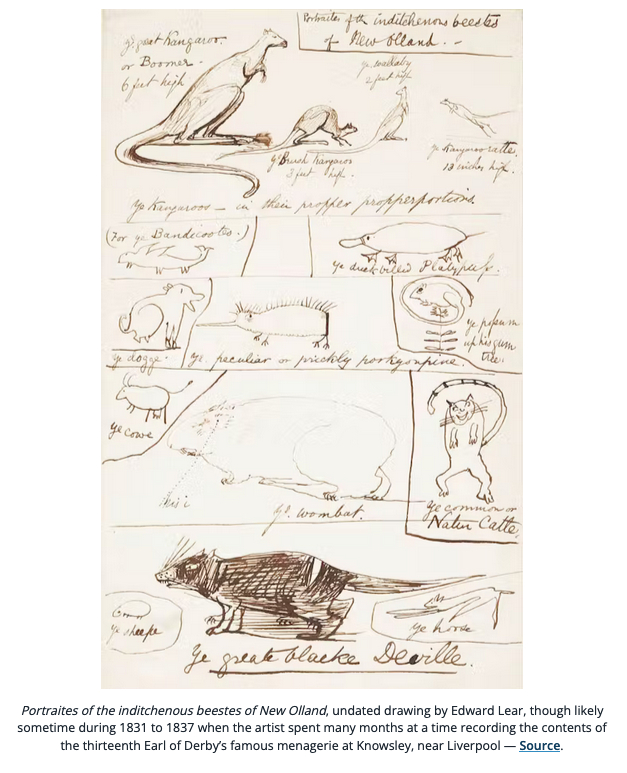 Portraites of the inditchenous beestes
of New Olland. -
ye great Kangaroo.
or Boomer.
6 feet high
ye wallaby
2 feet high
ye Brush Kangaroo
3 feet high.
ye Kangaroo ratte.
13 inches high.
ye Kangaroos - in their propper propperportions
(For ye Bandicootes.)
ye duck billed Platypuss.
ye dogge.
ye. peculiar or prickly porkyonpine.
ye possum
up his gum
tree.
ye cowe
ye. wombat.
ye common or
Natur Catte.
ye sheepe
ye horse
Ye greate blacke Deville.
Portraites of the inditchenous beestes of New Olland, undated drawing by Edward Lear, though likely
sometime during 1831 to 1837 when the artist spent many months at a time recording the contents of
the thirteenth Earl of Derby’s famous menagerie at Knowsley, near Liverpool — Source.